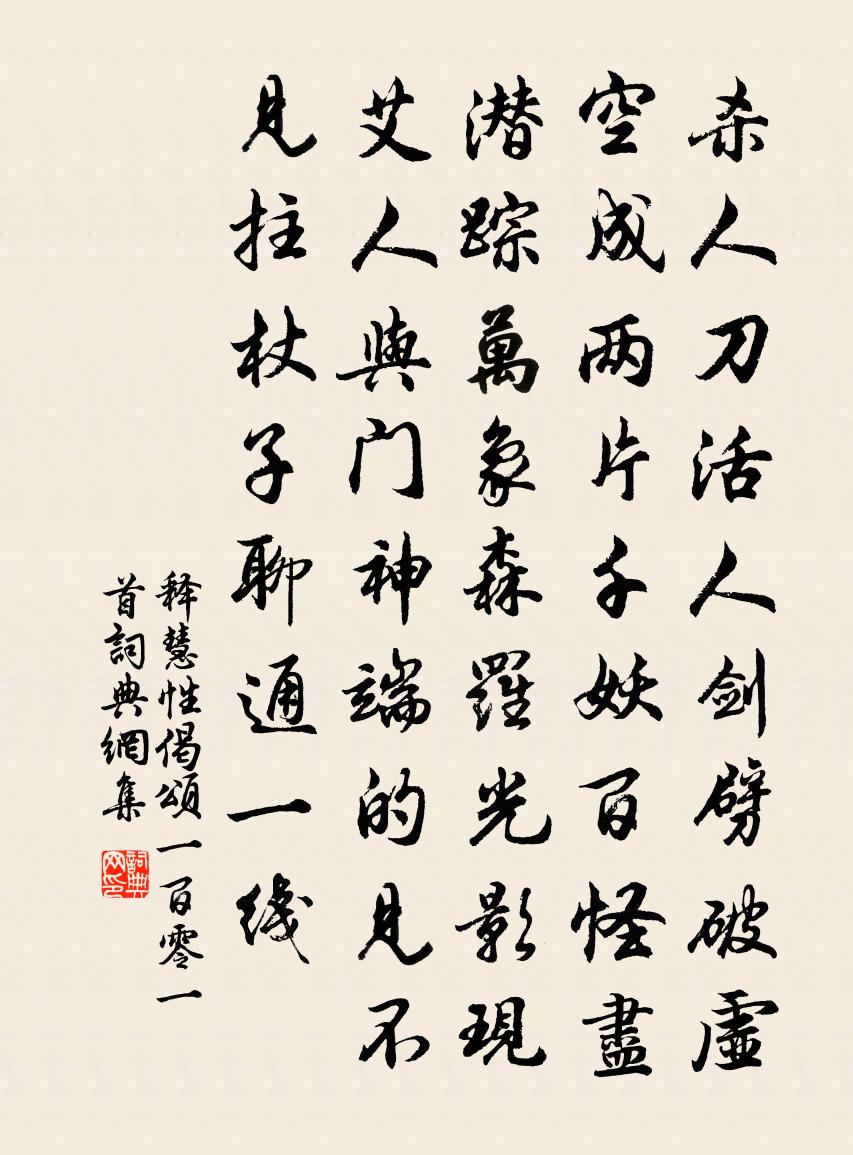 杀人刀活人剑劈破虚
空成两片千妖百怪盡
潜踪萬象森羅光影現
艾人與门神端的见不
见拄杖子聊通一线
释慧性偈頌一百零一
首詞典網集
詞典网印